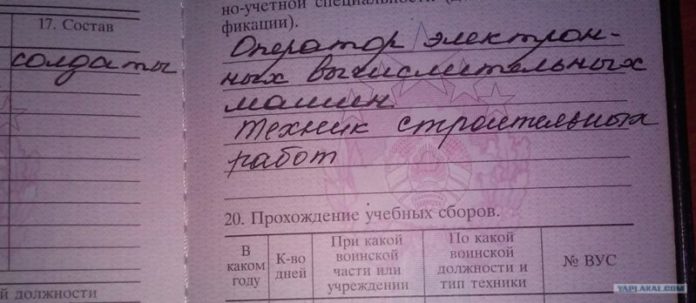 17. Состав
солдаты
й должности
но-учетной специальности
фикации).
Оператор электрон-
ных вычислительных
машин
техник строительных
работ
20. Прохождение учебных сборов.
В каком году
К-во дней
При какой воинской части или учреждении
По какой воинской должности и тип техники
№ ВУС
YAPLAKAL.COM